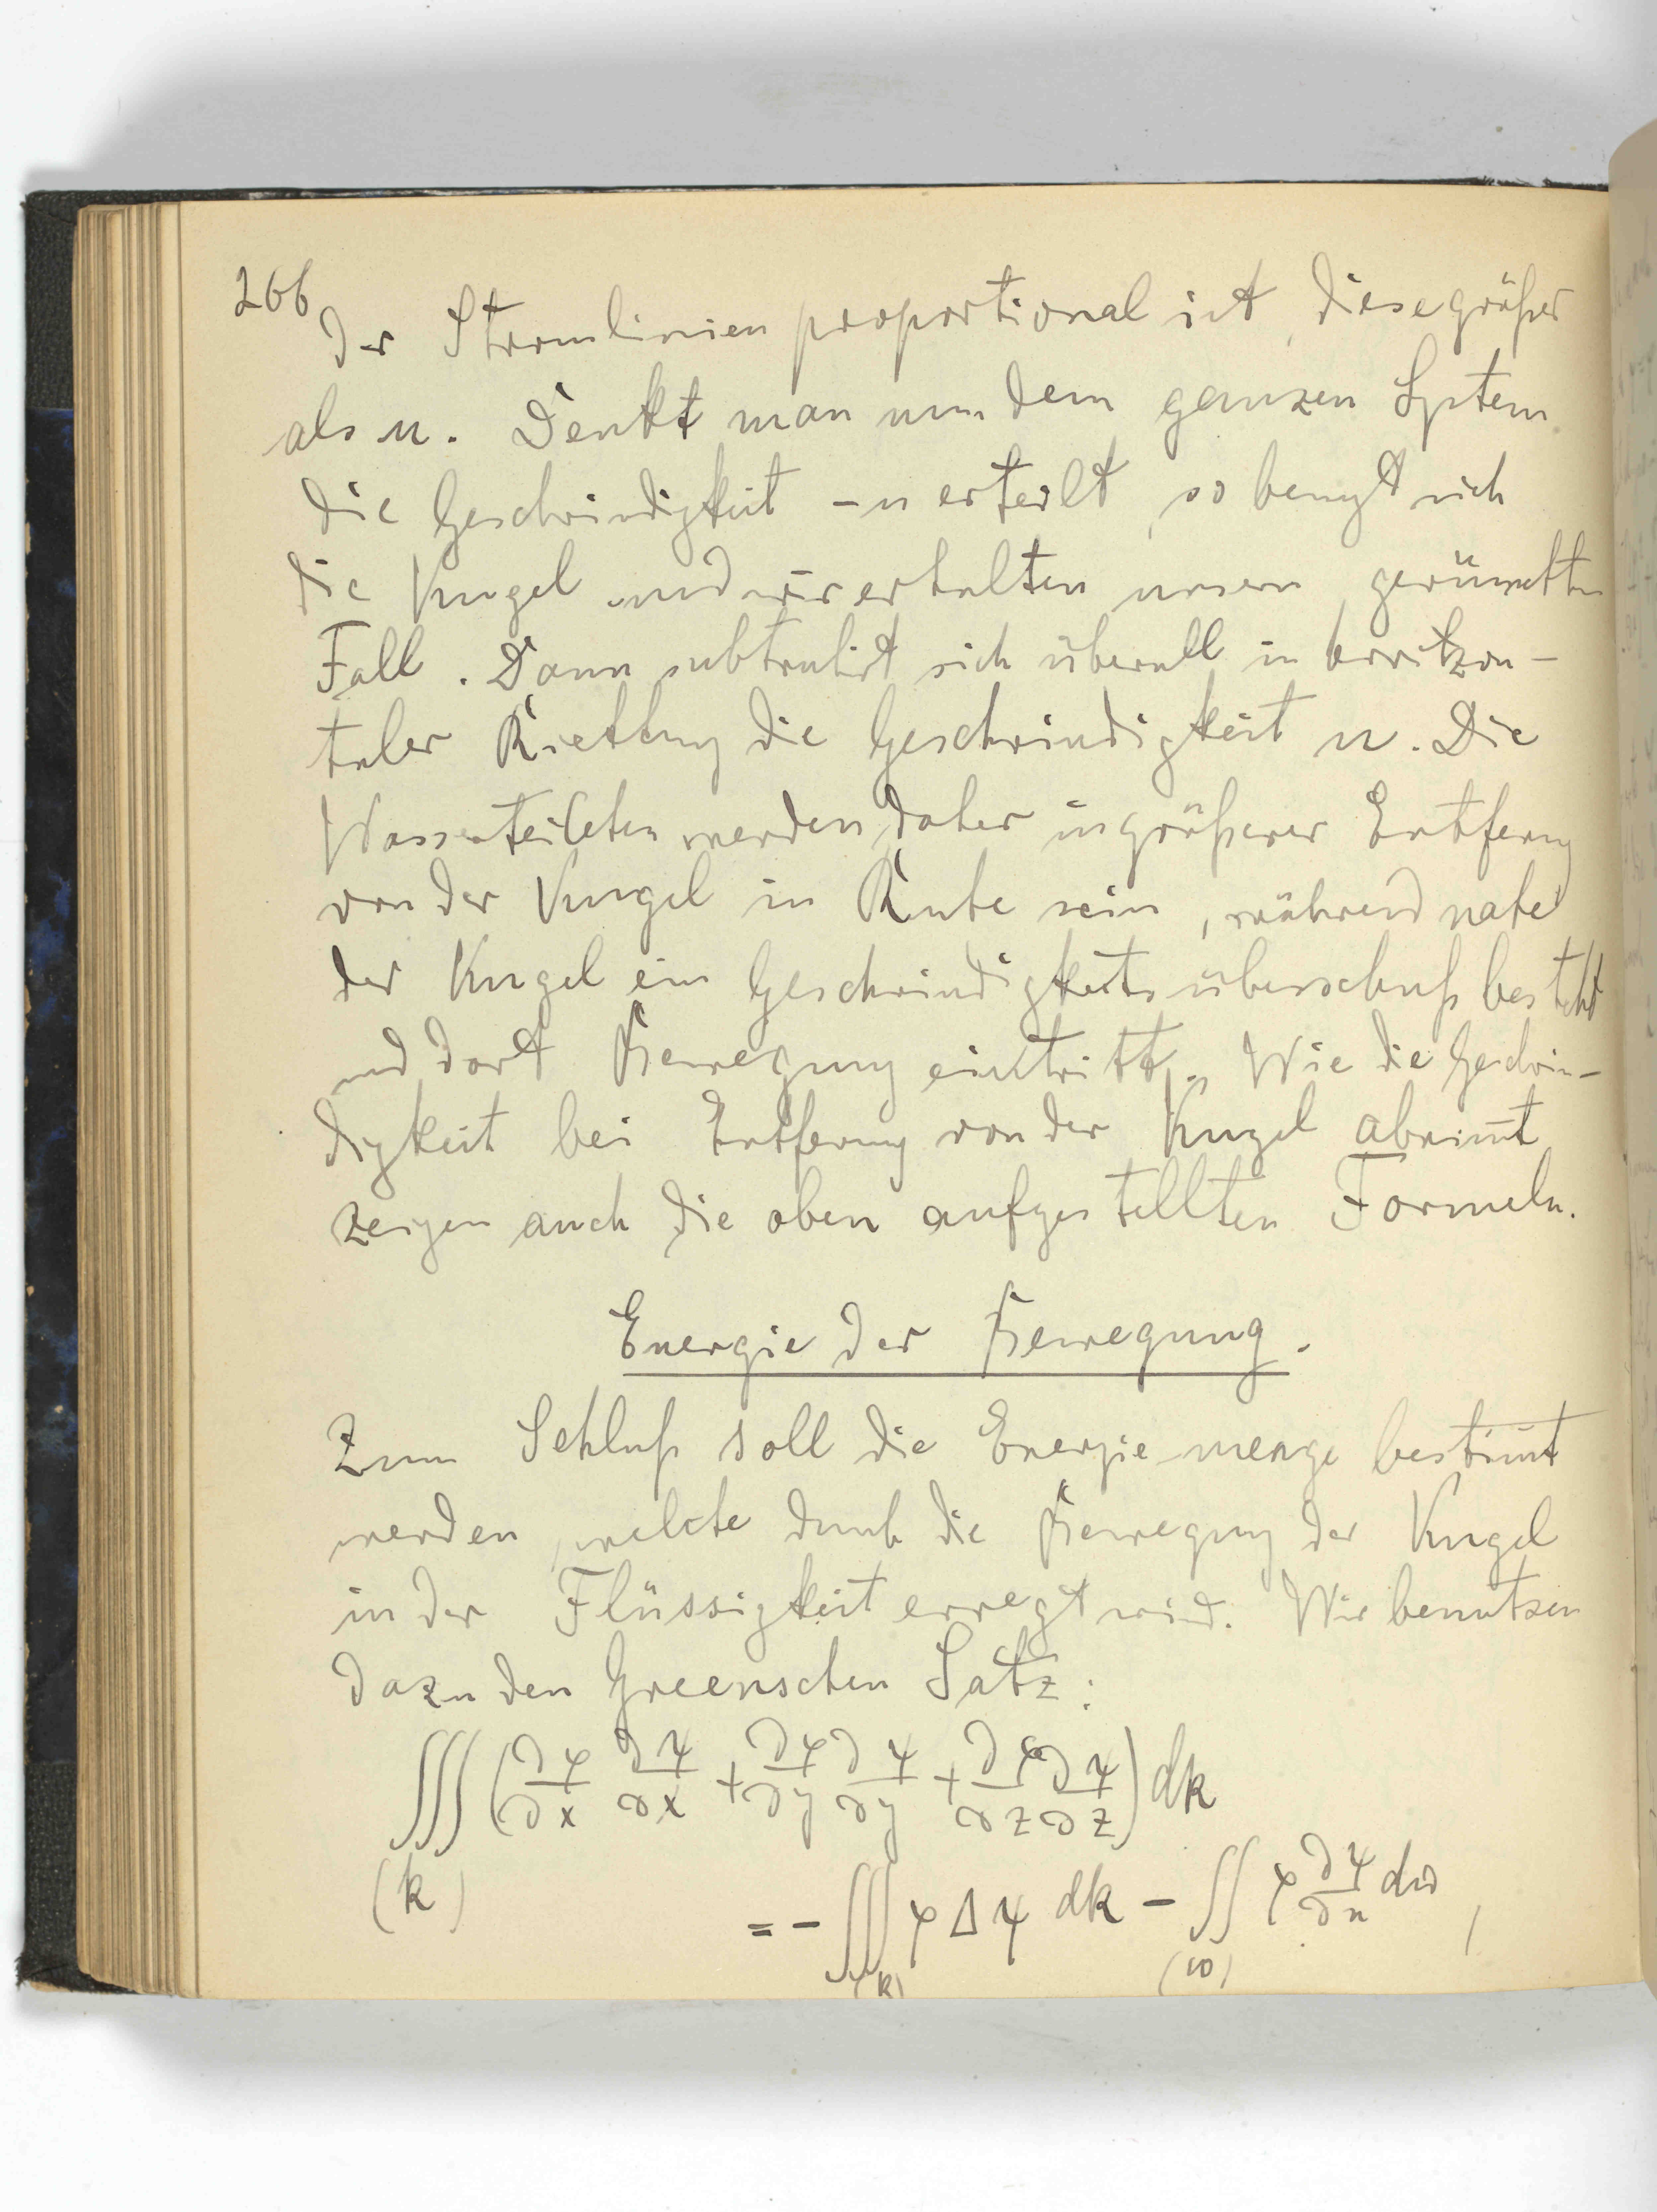 266
der Stromlinien proportional ist, diese größer
als u. Denkt man nun dem ganzen System
die Geschwindigkeit -u erteilt, so bewegt sich
die Kugel und wir erhalten unsern gewünschten
Fall. Dann subtrahirt sich überall in horitzon-
taler Richtung die Geschwindigkeit u. Die
Wasserteilchen werden daher in größerer Entferng
von der Kugel in Ruhe sein, während nahe
der Kugel ein Geschwindigkeitsüberschuß besteht
und dort Bewegung eintritt. Wie die Geschwin-
digkeit bei Entfernung von der Kugel abnim̅t
zeigen auch die oben aufgestellten Formeln.
Energie der Bewegung.
Zum Schluß soll die Energiemenge bestim̅t
werden, welche durch die Bewegung der Kugel
in der Flüssigkeit erregt wird. Wir benutzen
dazu den Greenschen Satz:
∭(∂φ/∂x ∂ψ/∂x + ∂φ/∂y ∂ψ/∂y + ∂φ/∂z ∂ψ/∂z) dk
(k)
= - ∭ φ Δ ψ dk - ∬ φ ∂ψ/∂n dω,
(k) (ω)